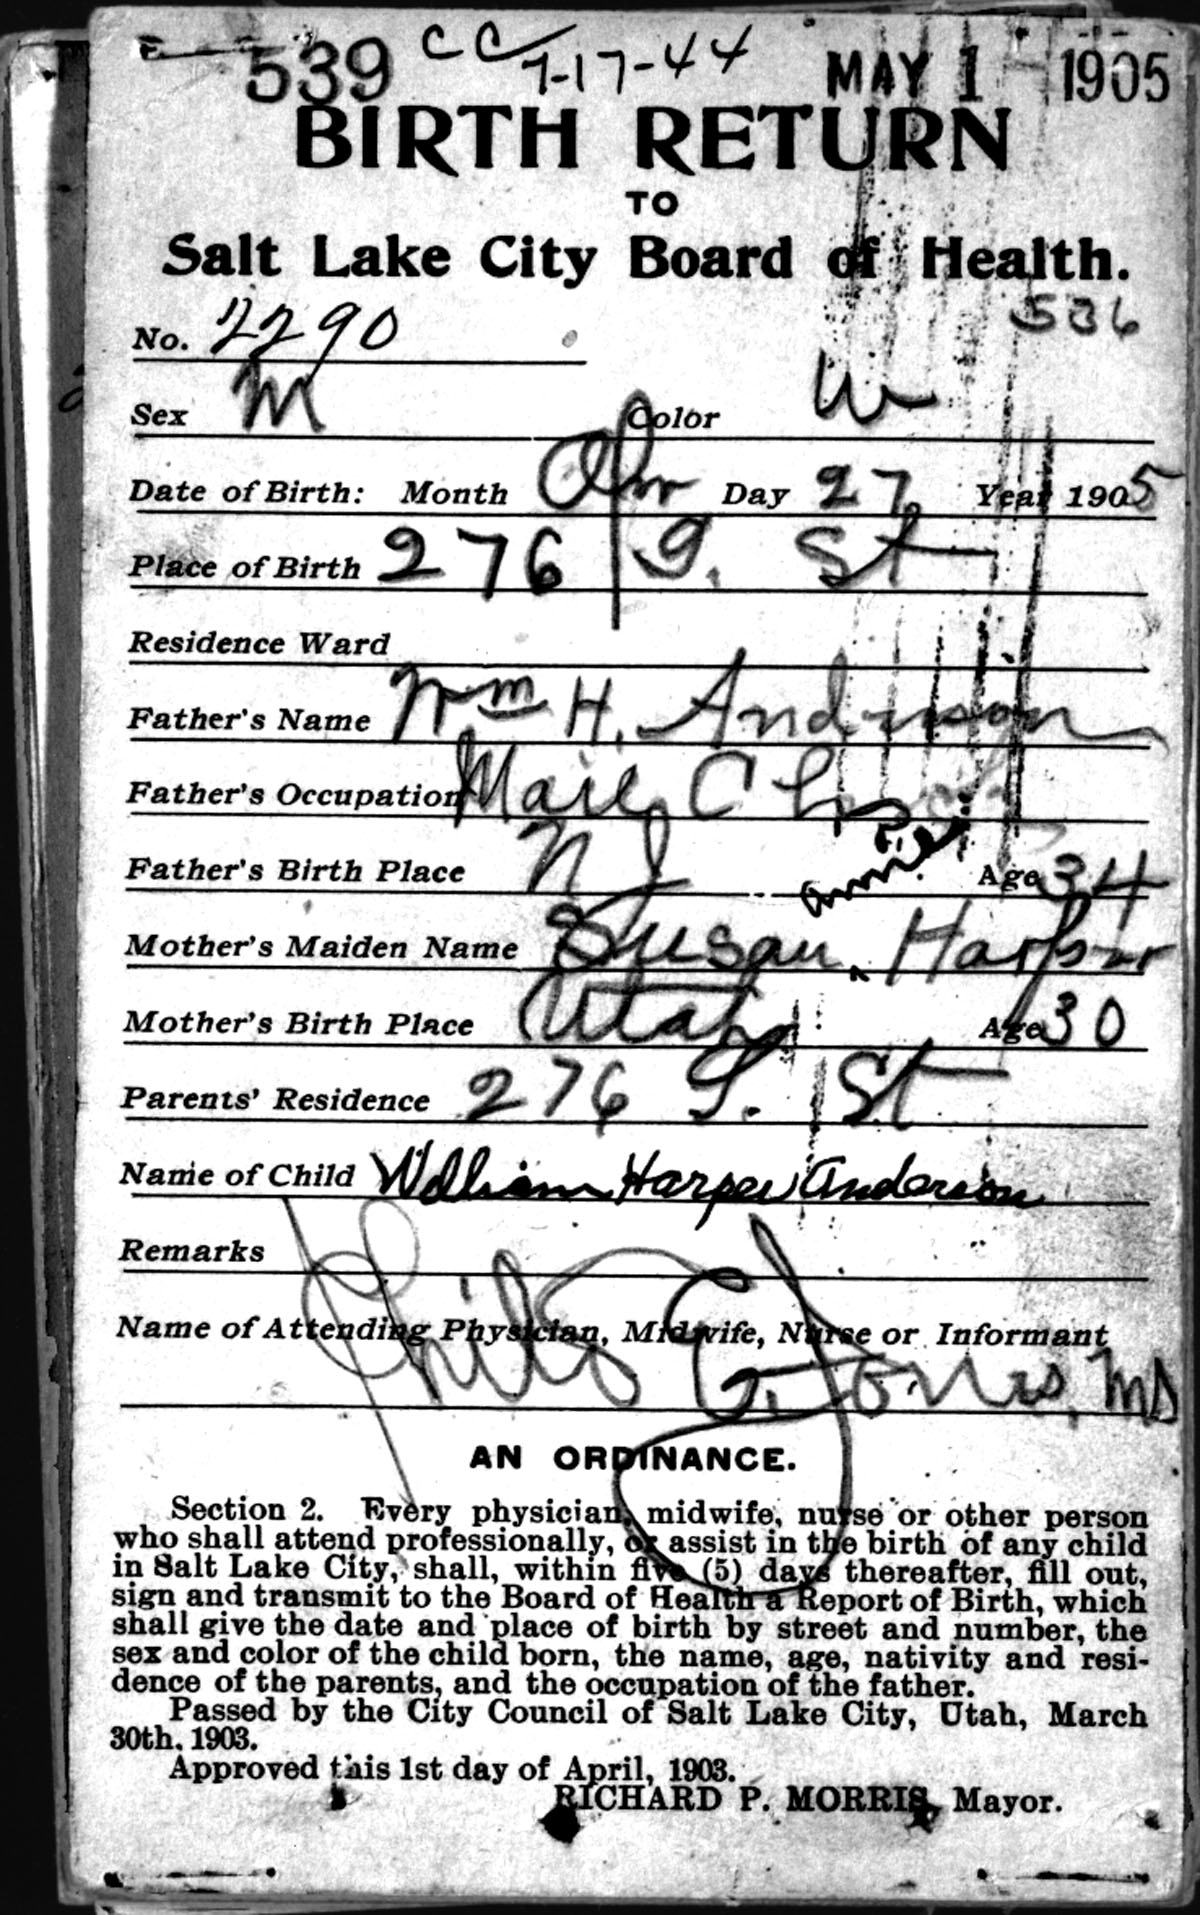 539 CC 7-17-44 MAY 1 1905
BIRTH RETURN
TO
Salt Lake City Board of Health.
536
No. 2290
Sex M Color W
Date of Birth: Month Apr Day 27 Year 1905
Place of Birth 276 S. St
Residence Ward
Father's Name Wm H. Anderson
Father's Occupation Mail Clerk
Father's Birth Place N J Age 34
Annie
Mother's Maiden Name Susan Harper
Mother's Birth Place Utah Age 30
Parents' Residence 276 S. St
Name of Child William Harper Anderson
Remarks
Name of Attending Physician, Midwife, Nurse or Informant
Jones, MD
AN ORDINANCE.
Section 2. Every physician, midwife, nurse or other person
who shall attend professionally, or assist in the birth of any child
in Salt Lake City, shall, within five (5) days thereafter, fill out,
sign and transmit to the Board of Health a Report of Birth, which
shall give the date and place of birth by street and number, the
sex and color of the child born, the name, age, nativity and resi-
dence of the parents, and the occupation of the father.
Passed by the City Council of Salt Lake City, Utah, March
30th, 1903.
Approved this 1st day of April, 1903.
RICHARD P. MORRIS, Mayor.